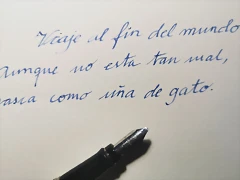 Viaje al fin del mundo
Aunque no está tan mal,
rasca como uña de gato.